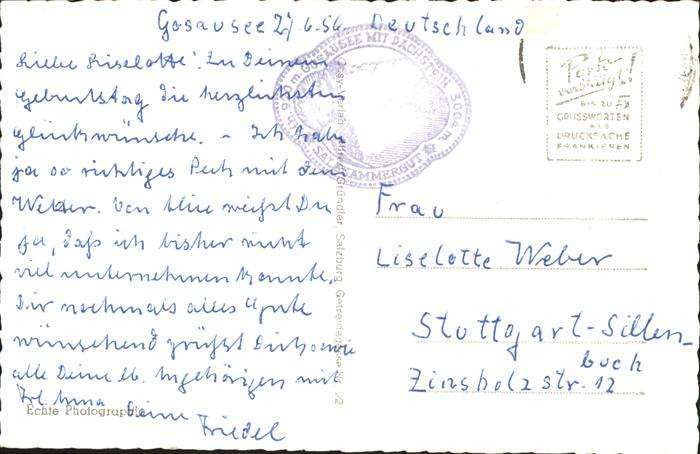 Gosausee 27/6.56 Deutschland
Liebe Liselotte! Zu Deinem
Geburtstag die herzlichsten
Glückwünsche. – Ich habe
ja so richtiges Pech mit dem
Wetter. Von weißt Du
ja, daß ich bisher nicht
viel unternehmen konnte.
Dir nochmals alles Gute
wünschend grüßt Dich sowie
alle Deine lb. Angehörigen mit
Deine
Friedel
Echte Photographie
GOSAUSEE MIT DACHSTEIN 3004 m.
SALZKAMMERGUT
Gründler, Salzburg, Getreidegasse Nr. 22
BIS ZU 5
GRUSSWORTEN
ALS
DRUCKSACHE
FRANKIEREN
Frau
Liselotte Weber
Stuttgart-Sillen-
buch
Zinsholzstr. 12